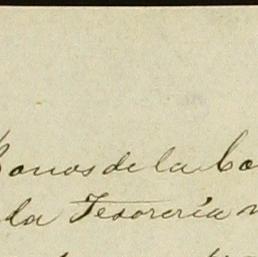 Bonos de la Co
la Tesorería n